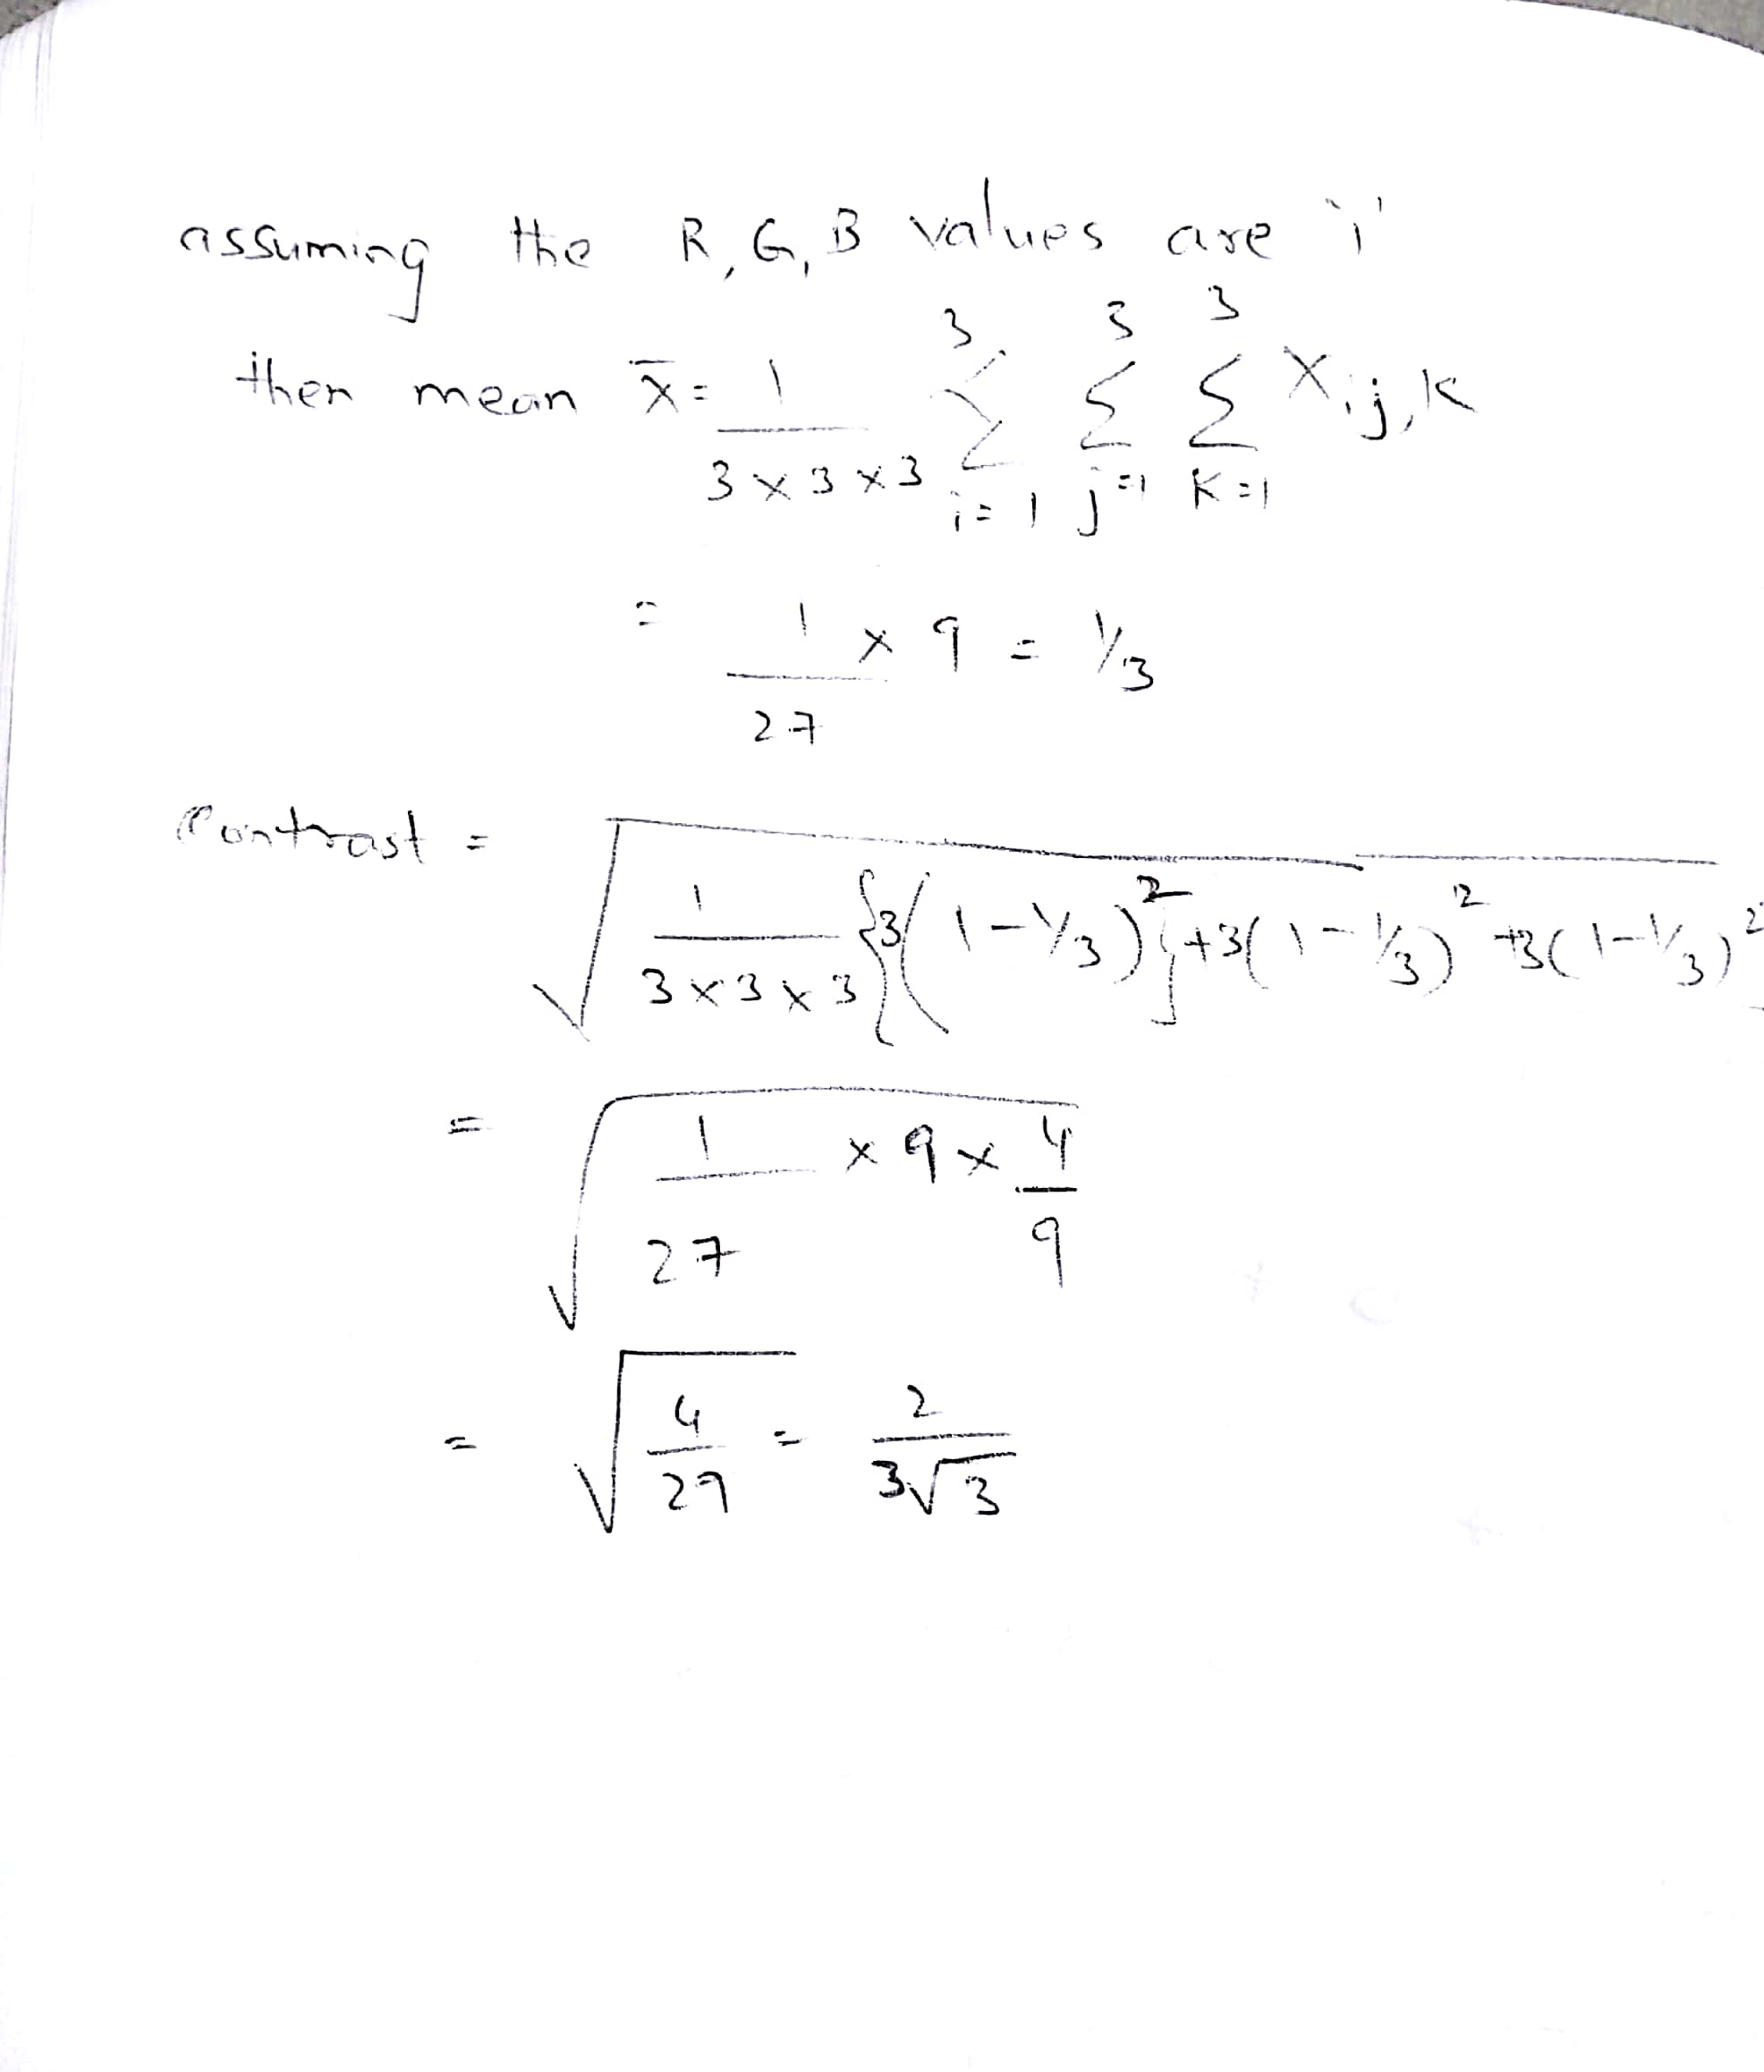 assuming the R, G, B values are '1'
then mean x̄ = 1/(3×3×3) 3Σi=1 3Σj=1 3Σk=1 Xi,j,k
= 1/27 × 9 = 1/3
Contrast = √(1/(3×3×3) {3(1-1/3)²} +3(1-1/3)² +3(1-1/3)²
= √(1/27 × 9 × 4/9)
= √(4/29) = 2/(3√3)